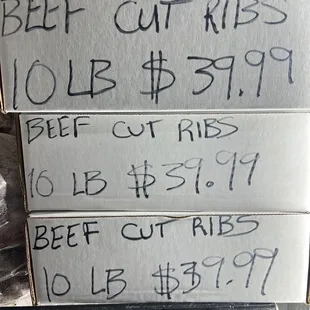 BEEF CUT RIBS
10 LB $39.99
BEEF CUT RIBS
10 LB $39.99
BEEF CUT RIBS
10 LB $39.99